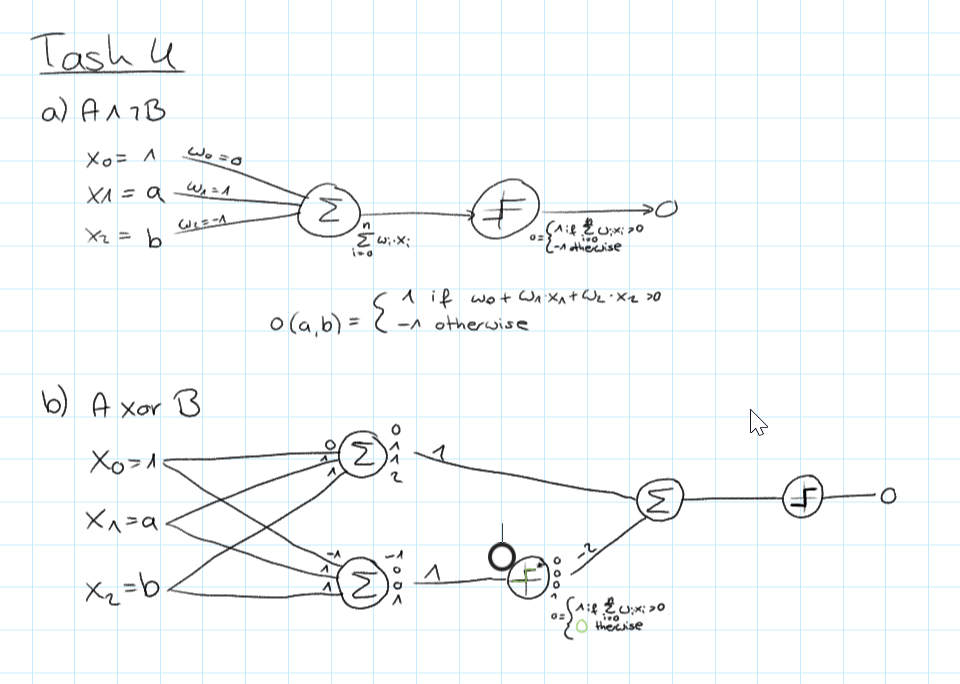 Task 4
a) A∧¬B
x0 = 1 w0=0
x1 = a w1=1
x2 = b w2=-1
Σ
n
Σ wi·xi
i=0
o={1 if Σ wixi >0
i=0
-1 otherwise
O
o(a,b) = { 1 if w0+w1·x1+w2·x2 >0
-1 otherwise
b) A xor B
x0=1
x1=a
x2=b
0
1
1
Σ
0
1
1
2
1
-1
1
1
Σ
-1
0
0
1
1
0
0
0
1
-2
o={1 if Σ wixi >0
i=0
0 therwise
Σ
O